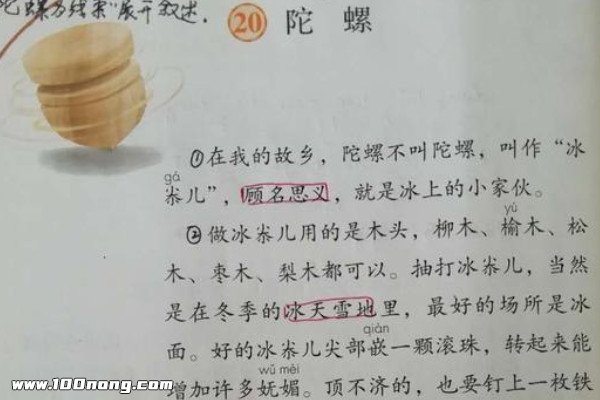 陀螺为线索"展开叙述.
20 陀 螺
①在我的故乡，陀螺不叫陀螺，叫作“冰
gá
尜儿”，顾名思义，就是冰上的小家伙。
yú
②做冰尜儿用的是木头，柳木、榆木、松
木、枣木、梨木都可以。抽打冰尜儿，当然
是在冬季的冰天雪地里，最好的场所是冰
qiàn
面。好的冰尜儿尖部嵌一颗滚珠，转起来能
wǔ mèi
增加许多妩媚。顶不济的，也要钉上一枚铁
www.100nong.com